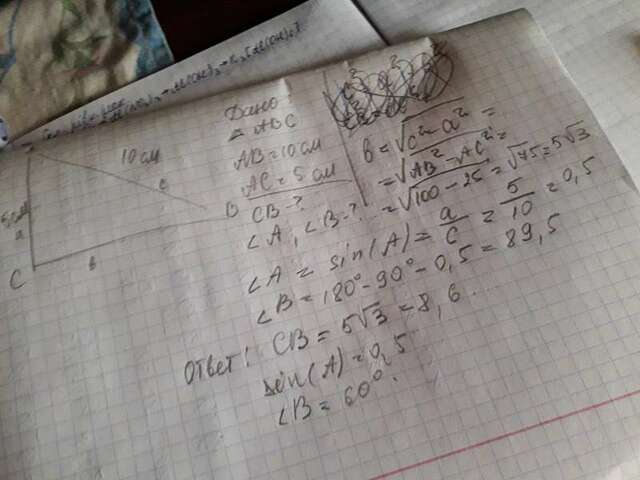 10 см
c
a
B
C
b
Дано
△ ABC
AB = 10 см
AC = 5 см
CB - ?
∠A, ∠B - ?
b = √c² - a² =
= √AB² - AC² =
= √100 - 25 = √75 = 5√3
∠A = sin(A) = a/c = 5/10 = 0,5
∠B = 180° - 90° - 0,5 = 89,5
Ответ: CB = 5√3 = 8,6...
sin(A) = 0,5
∠B = 60°.